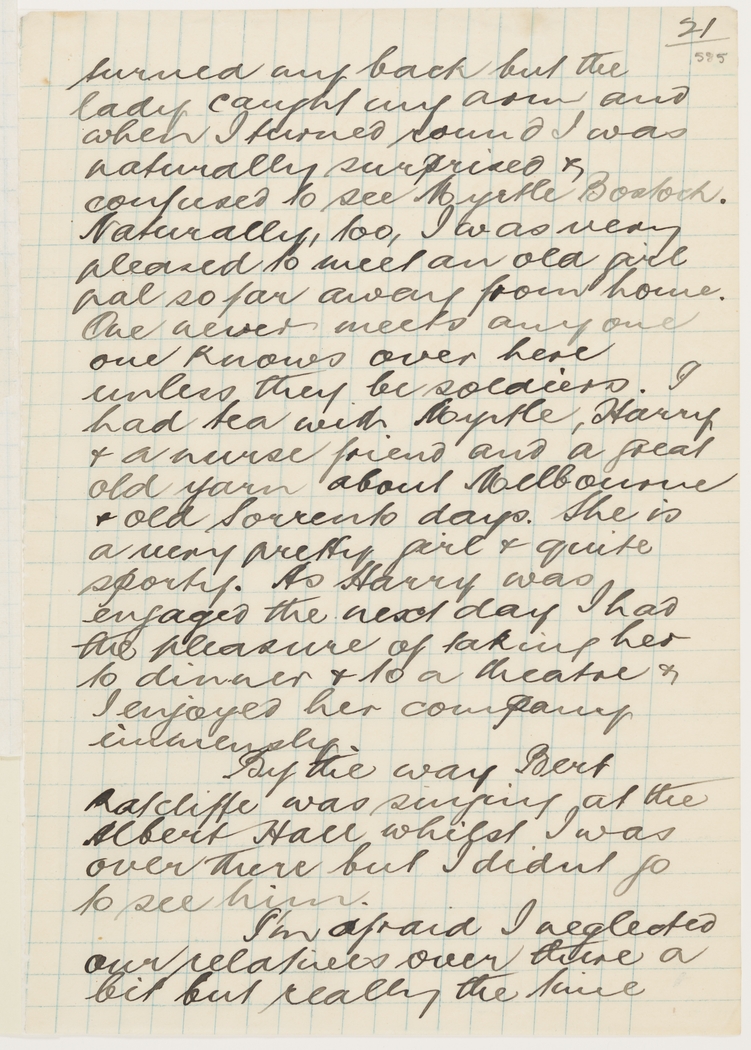 21
595
turned my back but the
lady caught my arm and
when I turned round I was
naturally surprised &
confused to see Myrtle Bostock.
Naturally, too, I was very
pleased to meet an old girl
pal so far away from home.
One never meets anyone
one knows over here
unless they be soldiers. I
had tea with Myrtle, Harry
& a nurse friend and a great
old yarn about Melbourne
& old Sorrento days. She is
a very pretty girl & quite
sporty. As Harry was
engaged the next day I had
the pleasure of taking her
to dinner & to a theatre &
I enjoyed her company
immensely.
By the way Bert
Ratcliffe was singing at the
Albert Hall whilst I was
over there but I didnt go
to see him.
I'm afraid I neglected
our relatives over there a
bit but really the time